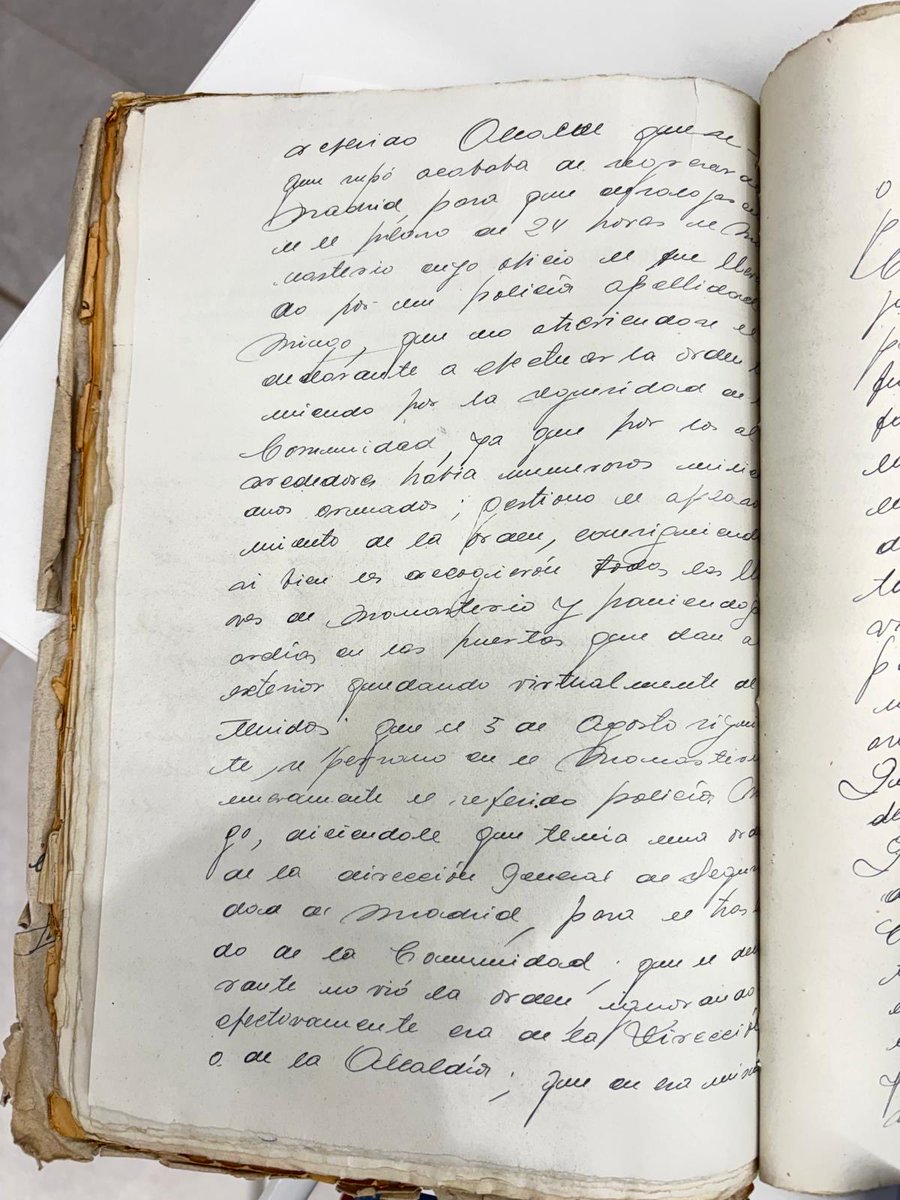 referido Alcalde que se-
gun supo acababa de regresar de
Madrid, para que desalojasen
en el plazo de 24 horas el Mo
nasterio cuyo oficio le fue lleva
do por un policía apellidado
Mingo, que no atreviendose el
declarante a efectuar la orden t
miendo por la seguridad de l
Comunidad, ya que por los al
rededores había numerosos milici
anos armados; gestiono el aplaza
miento de la orden, consiguiendo
si bien les recogierón todas las lla
ves del Monasterio y poniendo gu
ardias en las puertas que dan al
exterior quedando virtualmente de
tenidos; que el 5 de Agosto siguien
te, se persono en el Monasterio
nuevamente el referido policía Min
go, diciendole que tenia una orden
de la dirección General de Seguri
dad de Madrid, para el trasla
do de la Comunidad; que el decla
rante no vió la orden ignorando
efectivamente era de la Dirección
o de la Alcaldía; que en esa mis